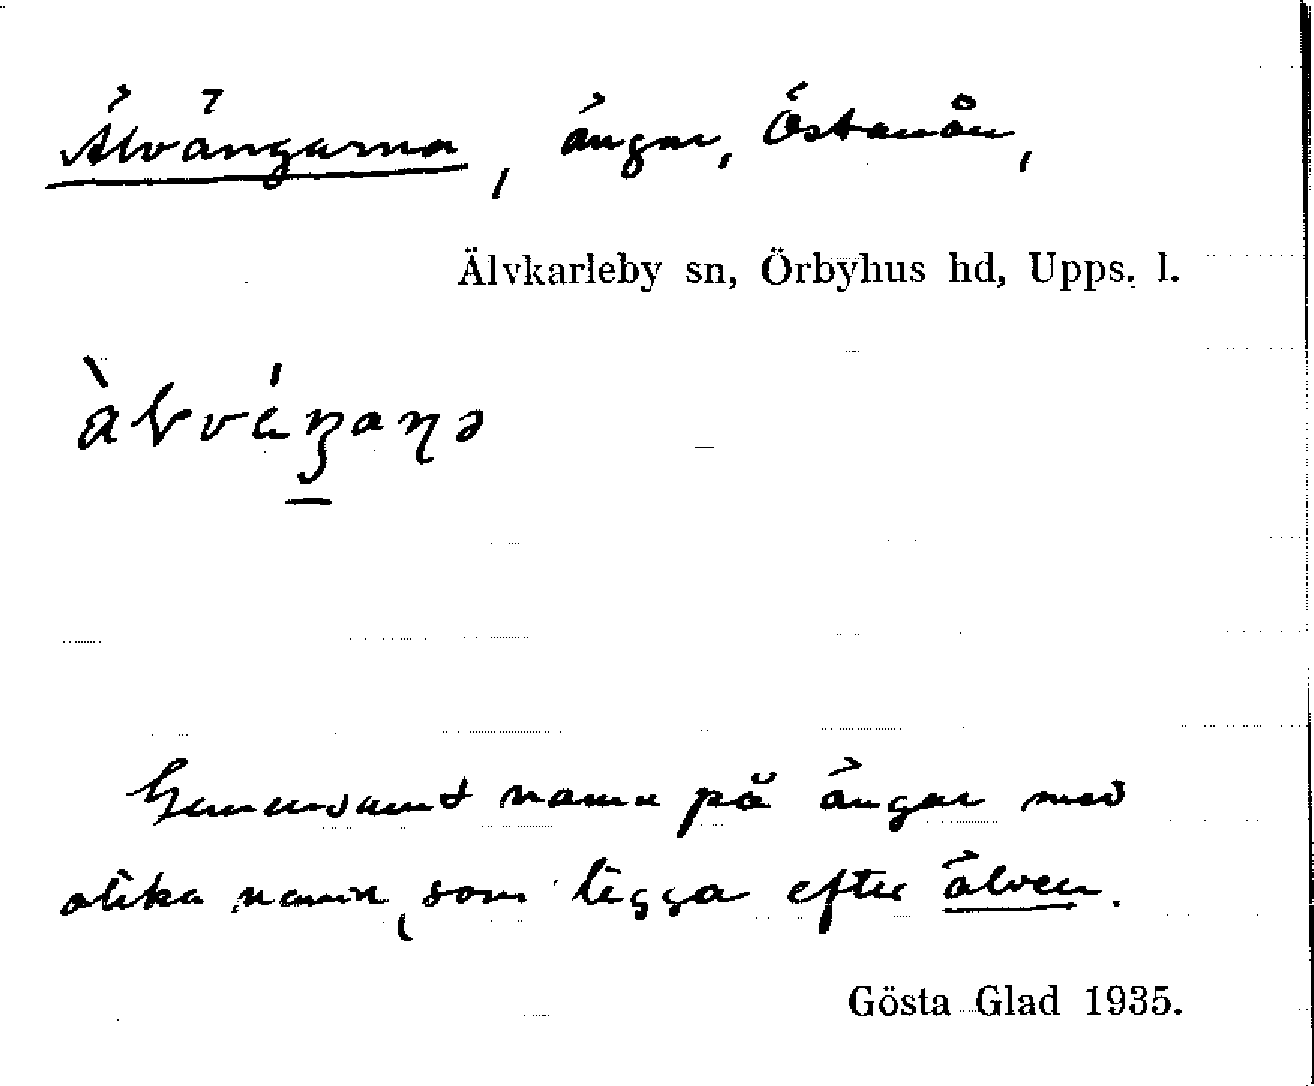 Älvängarna, ängar, Östanån,
Älvkarleby sn, Örbyhus hd, Upps. l.
Gemensamt namn på ängar med
olika namn, som ligga efter älven.
Gösta Glad 1935.